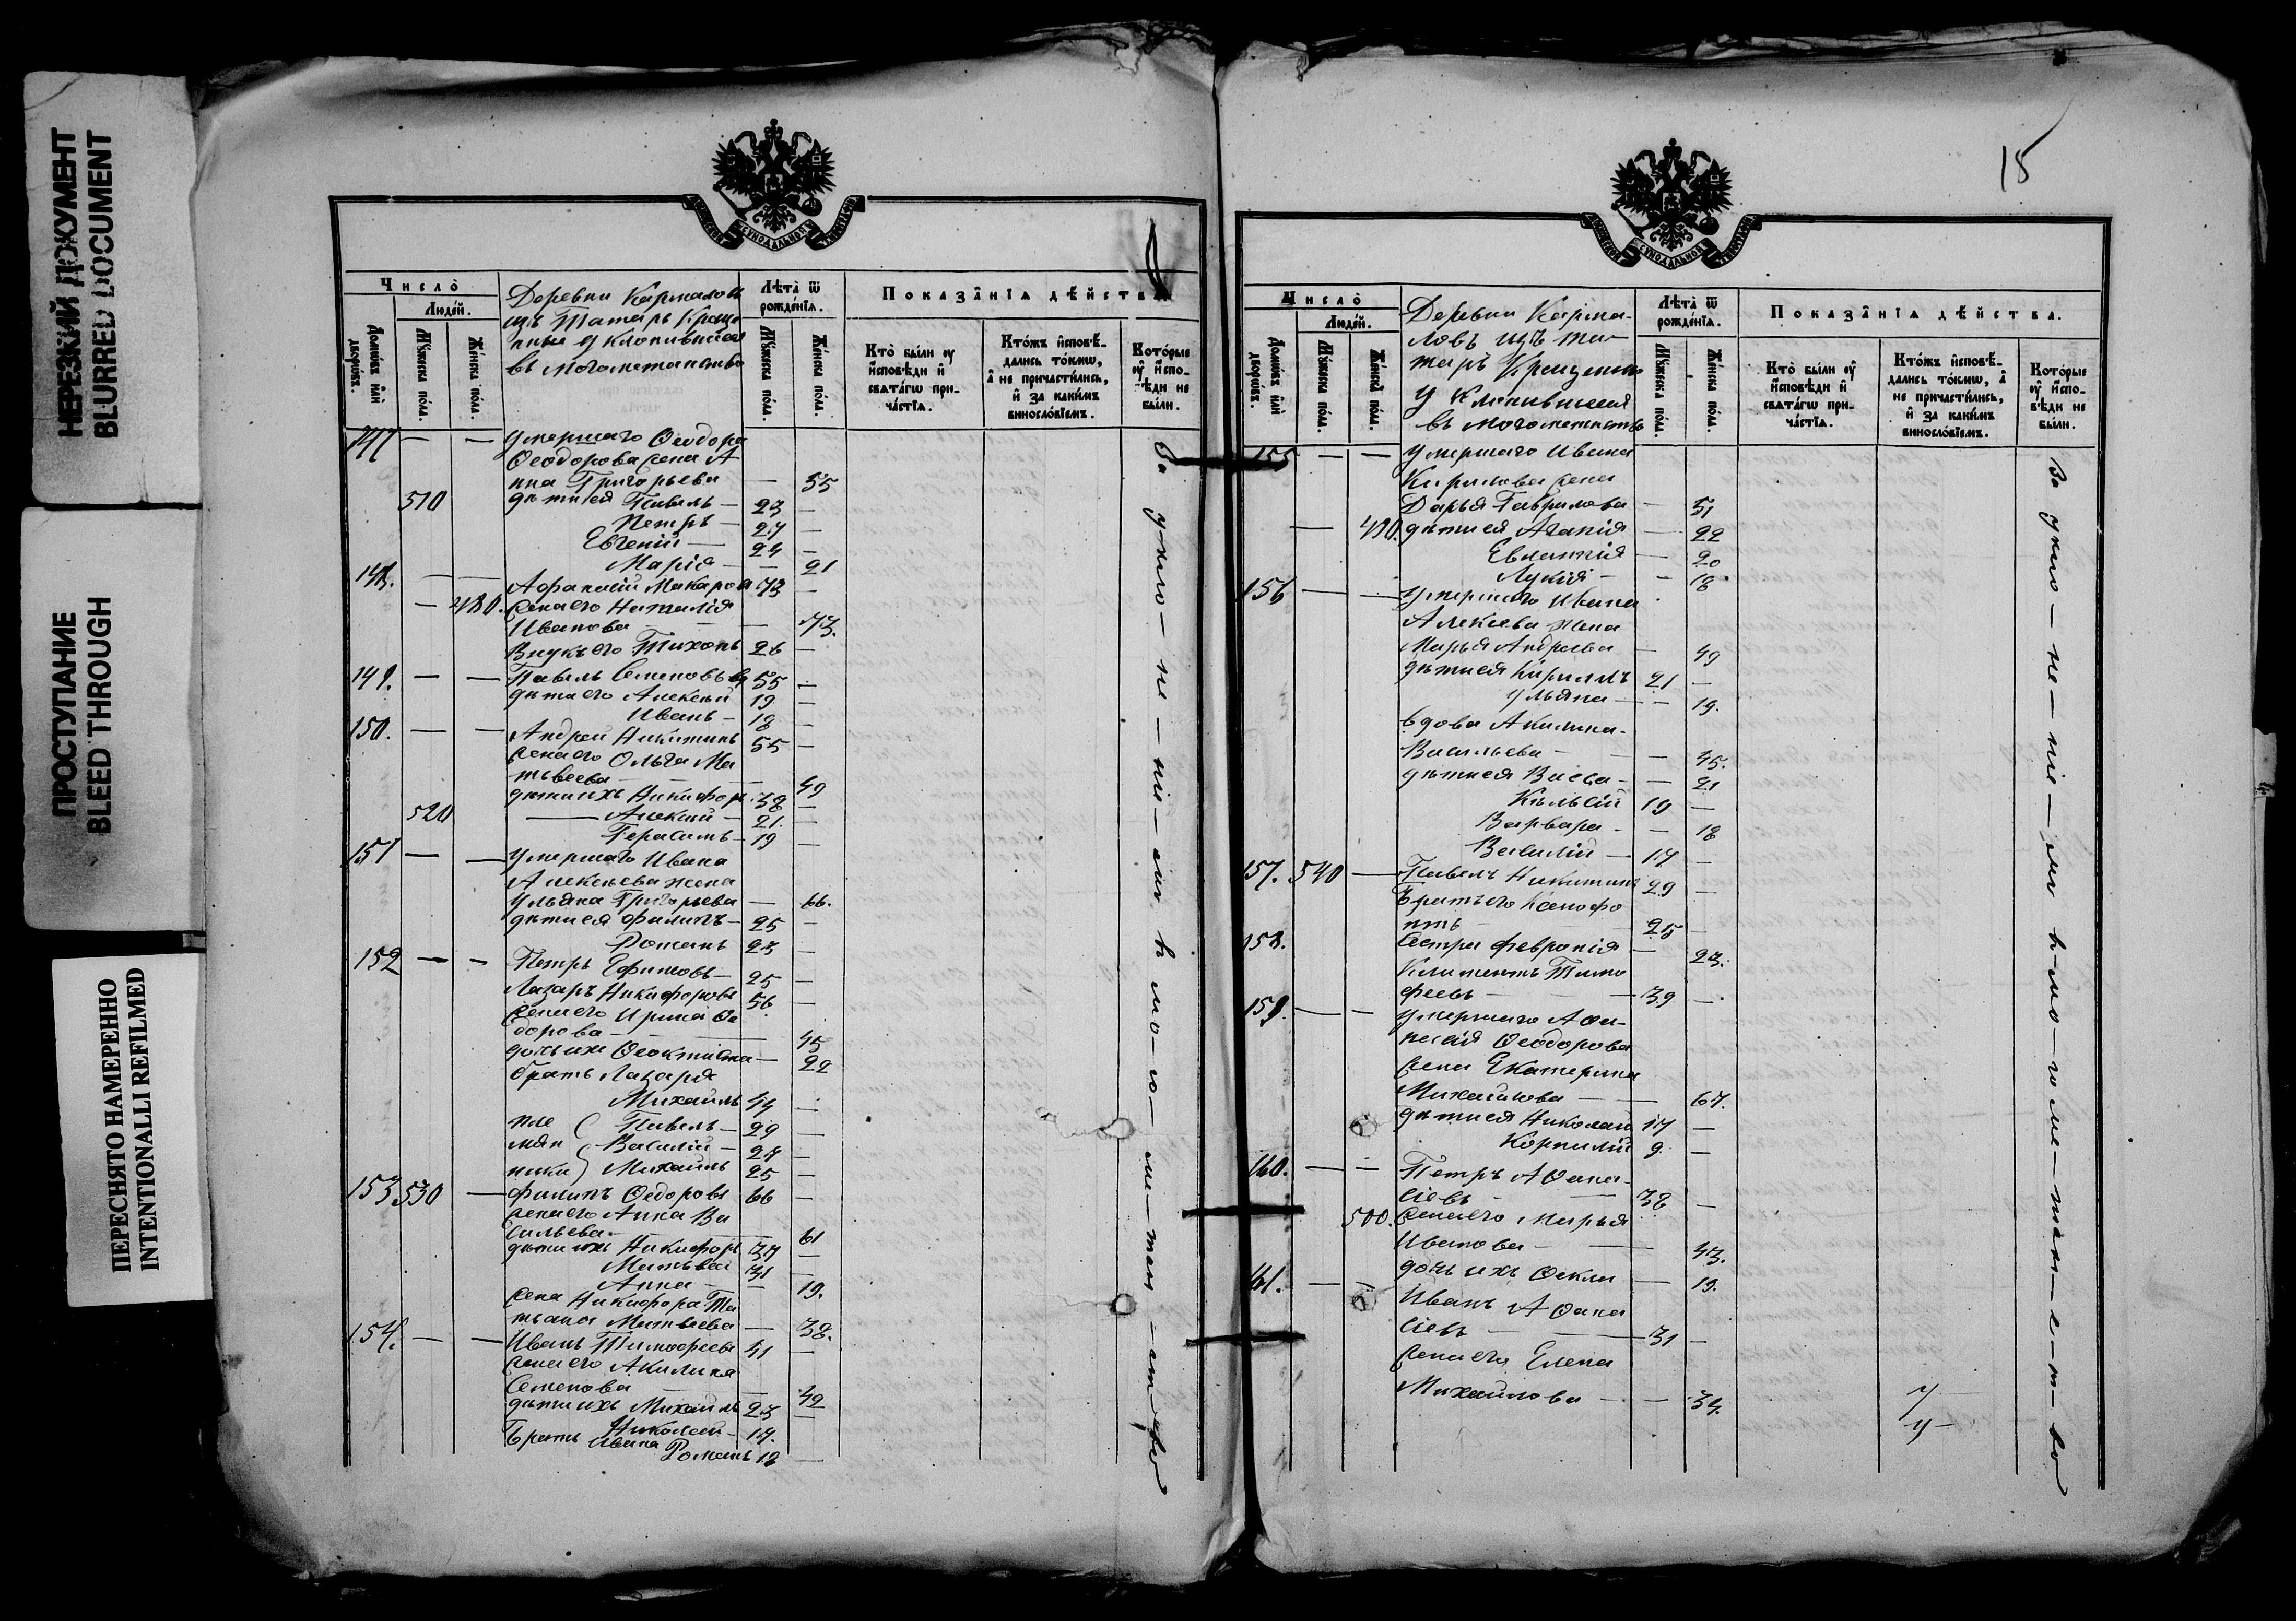 НЕРЕЗКИЙ ДОКУМЕНТ
BLURRED DOCUMENT
ПРОСТУПАНИЕ
BLEED THROUGH
ПЕРЕСНЯТО НАМЕРЕННО
INTENTIONALLI REFILMED
Число̀
Людей.
Домѡвъ или дворѡвъ.
Мꙋжеска пола.
Женска пола.
Деревни Кармалов
изъ татаръ Креще
ные уклонившіеся
въ могометанство
Лѣта ѿ рожденїѧ.
Мꙋжеска пола.
Женска пола.
Показанїѧ дѣйства.
Кто̀ были оу исповѣди и свѧтагѡ причастїѧ.
Ктожъ исповѣдались токмѡ, а не причастились, и за какимъ винословїемъ.
Которые оу исповѣди не были.
147 — — умершаго Ѳеодора
Ѳеодорова жена А
нна Григорьева — 55
510 дѣти ея Павелъ — 23 —
Петръ — 27 —
Евгеній — 24 —
Марія — — 21
148. — — Афанасій Макаров 73 —
— 480. жена его Наталія
Иванова — — 73.
Внукъ его Тихонъ 26 —
149. — — Павелъ Семеновъ 55 —
дѣти его Алексѣй 19 —
Иванъ — 18 —
150. — — Андрей Никитинъ 55 —
жена его Ольга Ма
твеева — — 49
дѣти ихъ Никифор 38 —
520 — Алексѣй — 21. —
Герасимъ — 19 —
151 — — умершаго Ивана
Алексѣева жена
Ульяна Григорьева — 66.
дѣти ея Филипъ — 25 —
Романъ 23 —
152 — — Петръ Ефимовъ — 25 —
Лазаръ Никифоровъ 56 —
жена его Ирина Ѳе
дорова — — 45
дочь ихъ Ѳеоктиста — 22
братъ Лазаря
Михаилъ 44 —
пле Павелъ — 29 —
мян Василій — 27 —
ники Михаилъ 25 —
153 530 — Филипъ Ѳедоровъ 66 —
жена его Анна Ва
сильева — — 61
дѣти ихъ Никифоръ 37 —
Матвѣй 31 —
Анна — — 19.
жена Никифора Та
тьяна Матвѣева — 38.
154. — — Иванъ Тимофеевъ 41 —
жена его Акилина
Семенова — 42
дѣти ихъ Михаилъ 23 —
Николай — 17.
Братъ Ивана Романъ 18 —
За укло-не-ні-емъ въ мо-го-ме-тан-ство
15
Число̀
Людей.
Домѡвъ или дворѡвъ.
Мꙋжеска пола.
Женска пола.
Деревни Карма-
ловъ изъ та-
таръ Крещеные
уклонившіеся
въ могометанство
Лѣта ѿ рожденїѧ.
Мꙋжеска пола.
Женска пола.
Показанїѧ дѣйства.
Кто̀ были оу исповѣди и свѧтагѡ причастїѧ.
Ктожъ исповѣдались токмѡ, а не причастились, и за какимъ винословїемъ.
Которые оу исповѣди не были.
155 — — умершаго Ивана
Кирилова жена
Дарья Гаврилова — 51
— 490. дѣти ея Агапія — 22
Евлампія — 20
Лукія — — 18
156 — — умершаго Ивана
Алексѣева жена
Марья Андреева — 49
дѣти ея Кириллъ 21 —
Ульяна — — 19.
вдова Акилина
Васильева — — 45.
дѣти ея Васса — — 21
19 —
Варвара — — 18
Василій — 17 —
157. 540 — Павелъ Никитинъ 29 —
Братъ его Ксенофо
нтъ — 25 —
158. сестра Февронія — 23.
Климентъ Тимо
феевъ — — 39 —
159. — — умершаго Аѳа-
насія Ѳеодорова
жена Екатерина
Михайлова — — 67.
дѣти ея Николай 17 —
Корнилій 9 —
160. — — Петръ Аѳана-
сіевъ — — 38 —
500. жена его Марья
Иванова — — 43.
дочь ихъ Ѳекла — 19.
161. — Иванъ Аѳана
сіевъ — 31 —
жена его Елена
Михайлова — — 34.
За укло-не-ніе-мъ въ мо-го-ме-тан-с-т-во